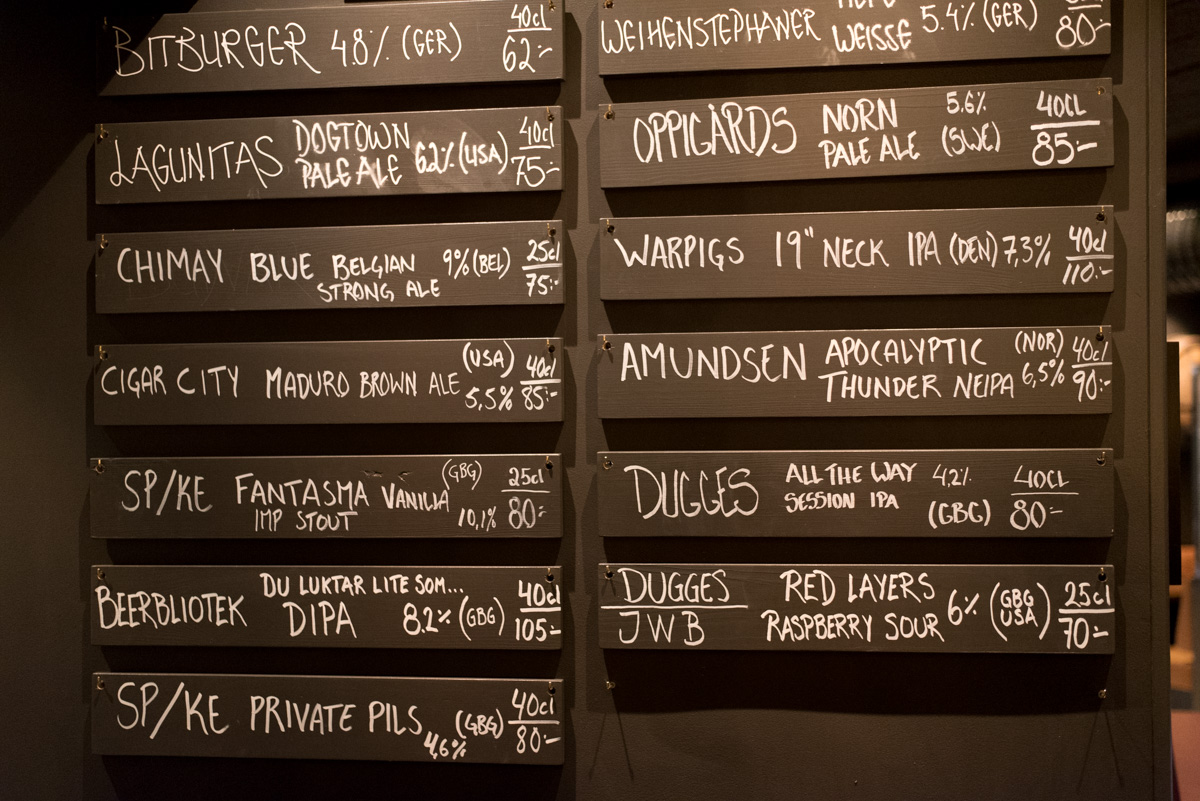 BITBURGER 4.8% (GER) 40cl
62:-
LAGUNITAS DOGTOWN 6.2% (USA) 40cl
PALE ALE 75:-
CHIMAY BLUE BELGIAN 9% (BEL) 25cl
STRONG ALE 75:-
CIGAR CITY MADURO BROWN ALE (USA) 40cl
5,5% 85:-
SP/KE FANTASMA VANILLA (GBG) 25cl
IMP STOUT 10,1% 80:-
BEERBLIOTEK DU LUKTAR LITE SOM... 40cl
DIPA 8.2% (GBG) 105:-
SP/KE PRIVATE PILS (GBG) 40cl
4,6% 80:-
WEIHENSTEPHANER WEISSE 5.4% (GER) 80:-
OPPIGÅRDS NORN 5.6% 40CL
PALE ALE (SWE) 85:-
WARPIGS 19" NECK IPA (DEN) 7,3% 40cl
110:-
AMUNDSEN APOCALYPTIC (NOR) 40cl
THUNDER NEIPA 6,5% 90:-
DUGGES ALL THE WAY 4,2% 40CL
SESSION IPA (GBG) 80:-
DUGGES RED LAYERS 6% (GBG 25cl
JWB RASPBERRY SOUR USA) 70:-